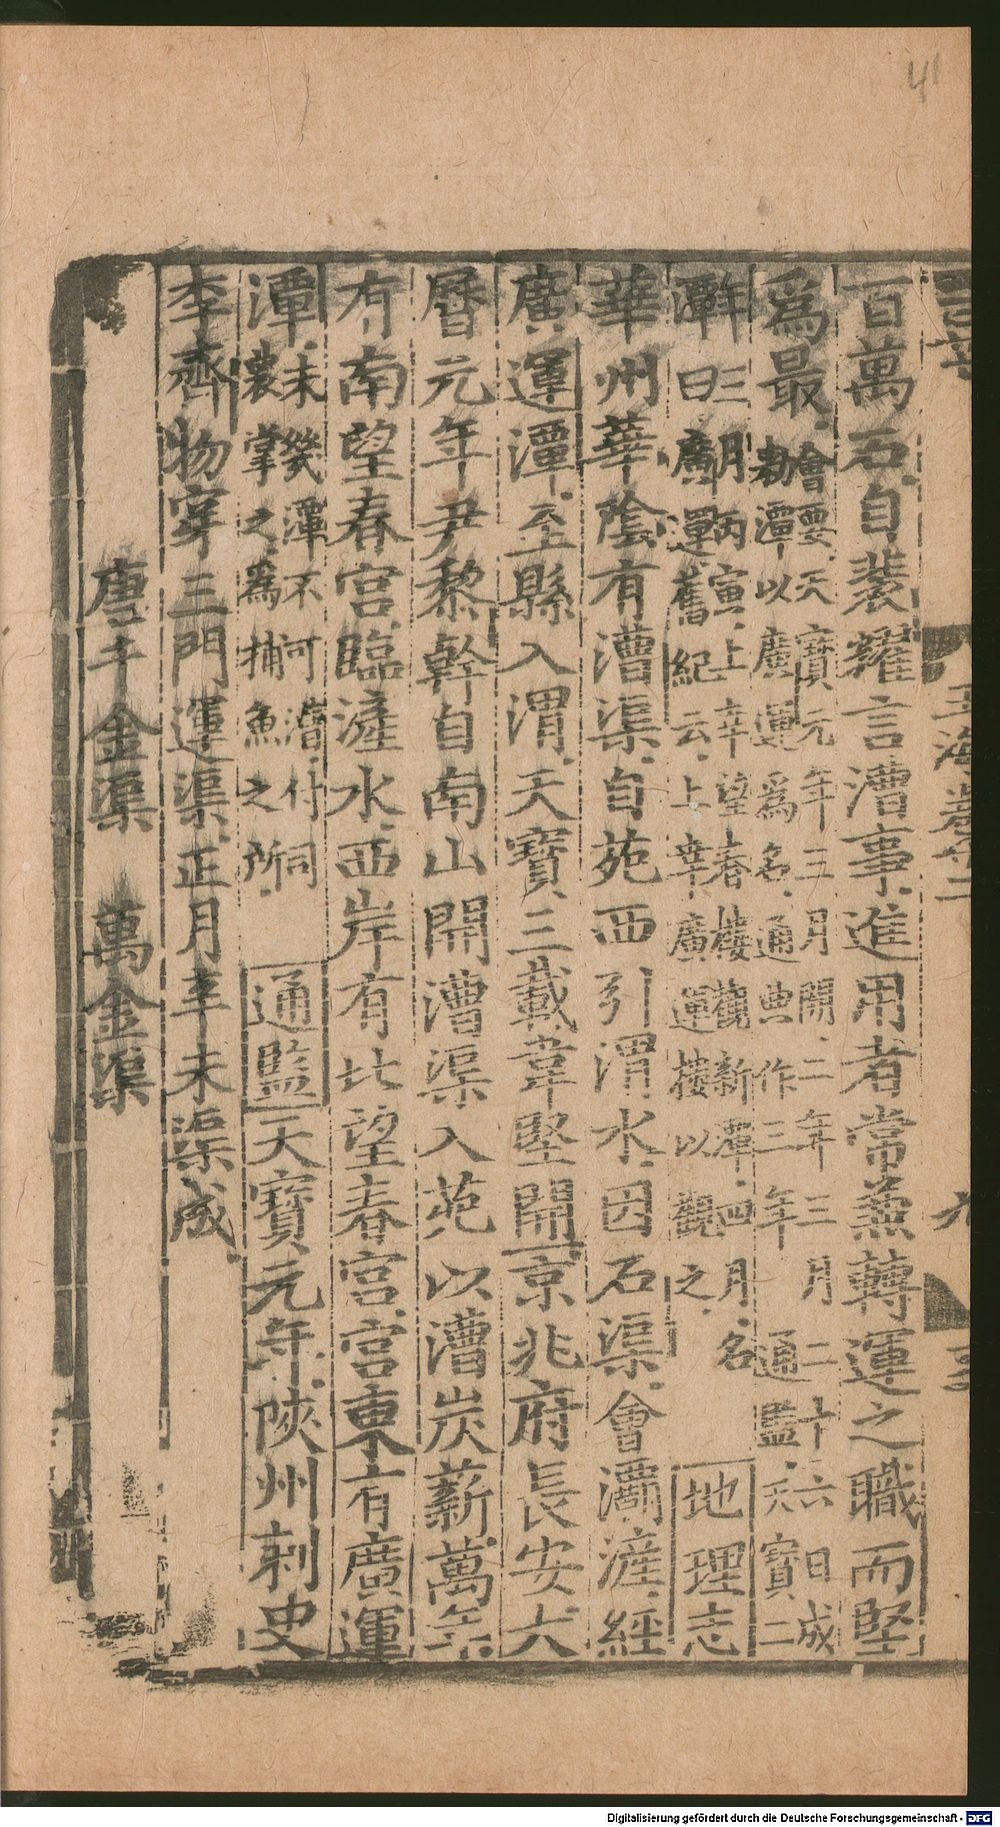 41
百萬石自裴耀言漕事進用者常兼轉運之職而堅
爲最會要天寶元年三月開二年三月二十六日成
勑潭以廣運爲名通典作三年通監天寶二
年三月丙寅上幸望春樓觀新潭四月名
潭曰廣運舊紀云上幸廣運樓以觀之地理志
華州華陰有漕渠自苑西引渭水因石渠會灞滻經
廣運潭至縣入渭天寶三載韋堅開京兆府長安大
曆元年尹黎幹自南山開漕渠入苑以漕炭薪萬年
有南望春宮臨滻水西岸有北望春宮宮東有廣運
潭未幾潭不可漕付司
農掌之爲捕魚之所通監天寶元年陝州刺史
李齊物穿三門運渠正月辛未渠成
唐千金渠 萬金渠
玉海
九
Digitalisierung gefördert durch die Deutsche Forschungsgemeinschaft - DFG